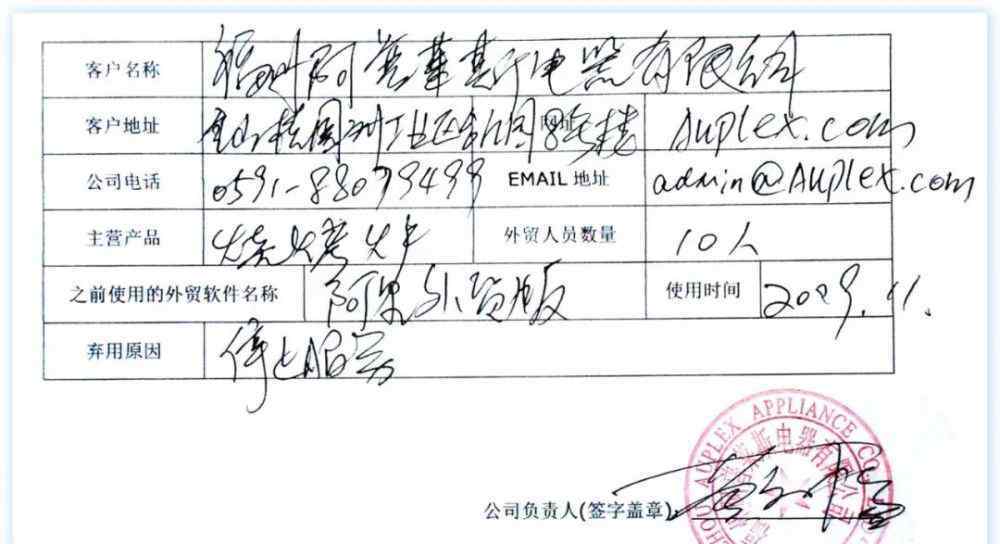 客户名称 福州阿普莱斯电器有限公司
客户地址 金山桔园洲工业区 园8号楼 网址 Auplex.com
公司电话 0591-88079499 EMAIL 地址 admin@Auplex.com
主营产品 烧烤炉 外贸人员数量 10人
之前使用的外贸软件名称 阿里外贸版 使用时间 2009.11.
弃用原因 停止服务
AUPLEX APPLIANCE CO.
斯电器有限公司
公司负责人(签字盖章)